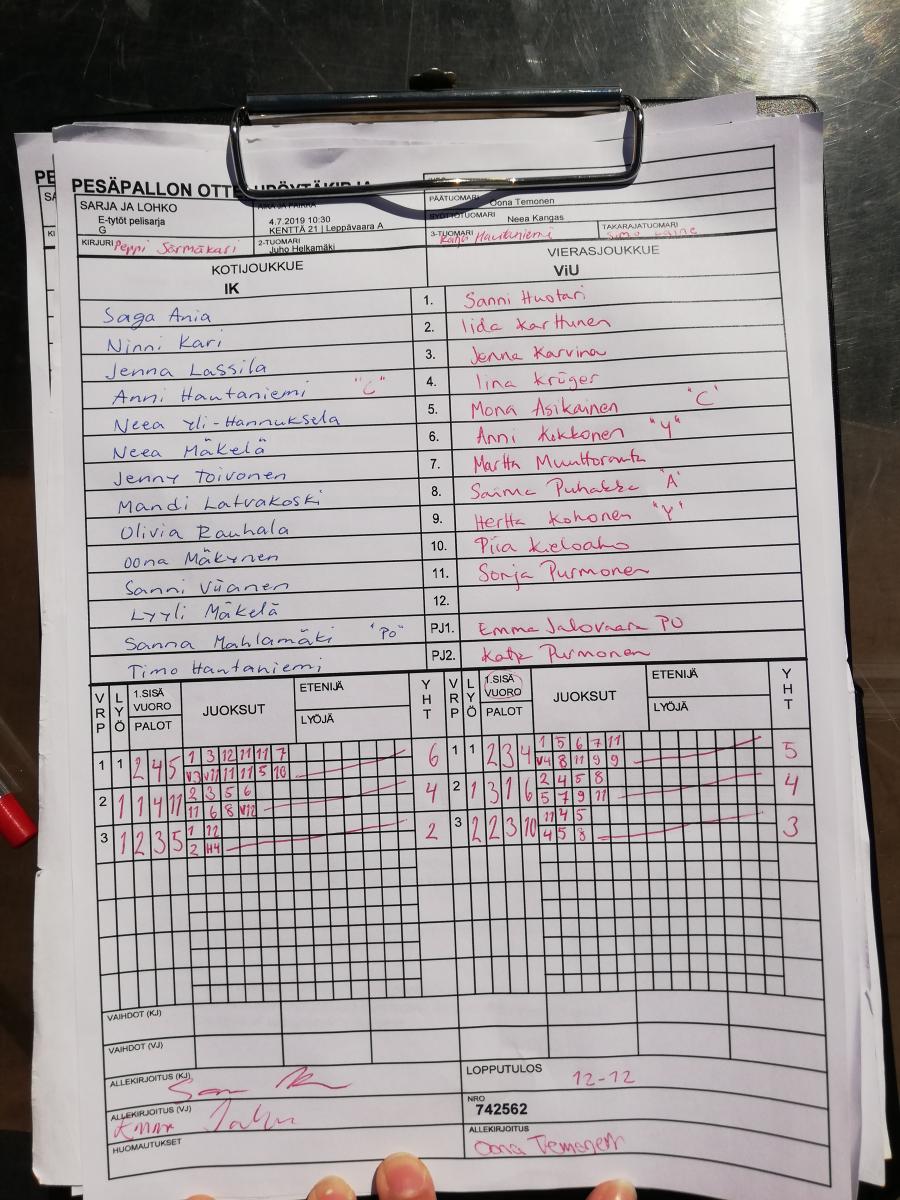 PE
PESÄPALLON OTTELUPÖYTÄKIRJA
SARJA JA LOHKO
E-tytöt pelisarja
G
AIKA JA PAIKKA
4.7.2019 10:30
KENTTÄ 21 | Leppävaara A
PÄÄTUOMARI
Oona Temonen
SYÖTTÖTUOMARI
Neea Kangas
KIRJURI Peppi Särmäkari
2-TUOMARI
Juho Helkamäki
3-TUOMARI
Kaija Hautaniemi
TAKARAJATUOMARI
KOTIJOUKKUE
IK
VIERASJOUKKUE
ViU
Saga Ania 1. Sanni Huotari
Ninni Kari 2. Iida Karttunen
Jenna Lassila 3. Jenna Karvina
Anni Hautaniemi "C" 4. Iina Krüger
Neea Yli-Hannuksela 5. Mona Asikainen "C"
Neea Mäkelä 6. Anni Kokkonen "Y"
Jenny Toivonen 7. Martta
Mandi Latvakoski 8. Saima Puhakka "A"
Olivia Rauhala 9. Hertta Kohonen "Y"
Oona Mäkynen 10. Piia Kieloaho
Sanni Viianen 11. Sonja Purmonen
Lyyli Mäkelä 12.
Sanna Mahlamäki "PO" PJ1. Emma Jalovaara PO
Timo Hautaniemi PJ2. Katja Purmonen
VRP LYÖ 1.SISÄ VUORO PALOT JUOKSUT ETENIJÄ LYÖJÄ YHT VRP LYÖ 1.SISÄ VUORO PALOT JUOKSUT ETENIJÄ LYÖJÄ YHT
1 3 12 11 11 7 1 5 6 7 11
1 1 2 4 5 6 1 1 2 3 4 5
V3 V11 11 11 5 10 V4 8 11 9 9
2 3 5 6 2 4 5 8
2 1 1 4 11 4 2 1 3 1 6 4
11 6 8 V12 5 7 9 11
1 12 11 4 5
3 1 2 3 5 2 3 2 2 3 10 3
2 H4 4 5 8
VAIHDOT (KJ)
VAIHDOT (VJ)
ALLEKIRJOITUS (KJ)
LOPPUTULOS
12-12
ALLEKIRJOITUS (VJ)
NRO
742562
HUOMAUTUKSET
ALLEKIRJOITUS
Oona Temonen